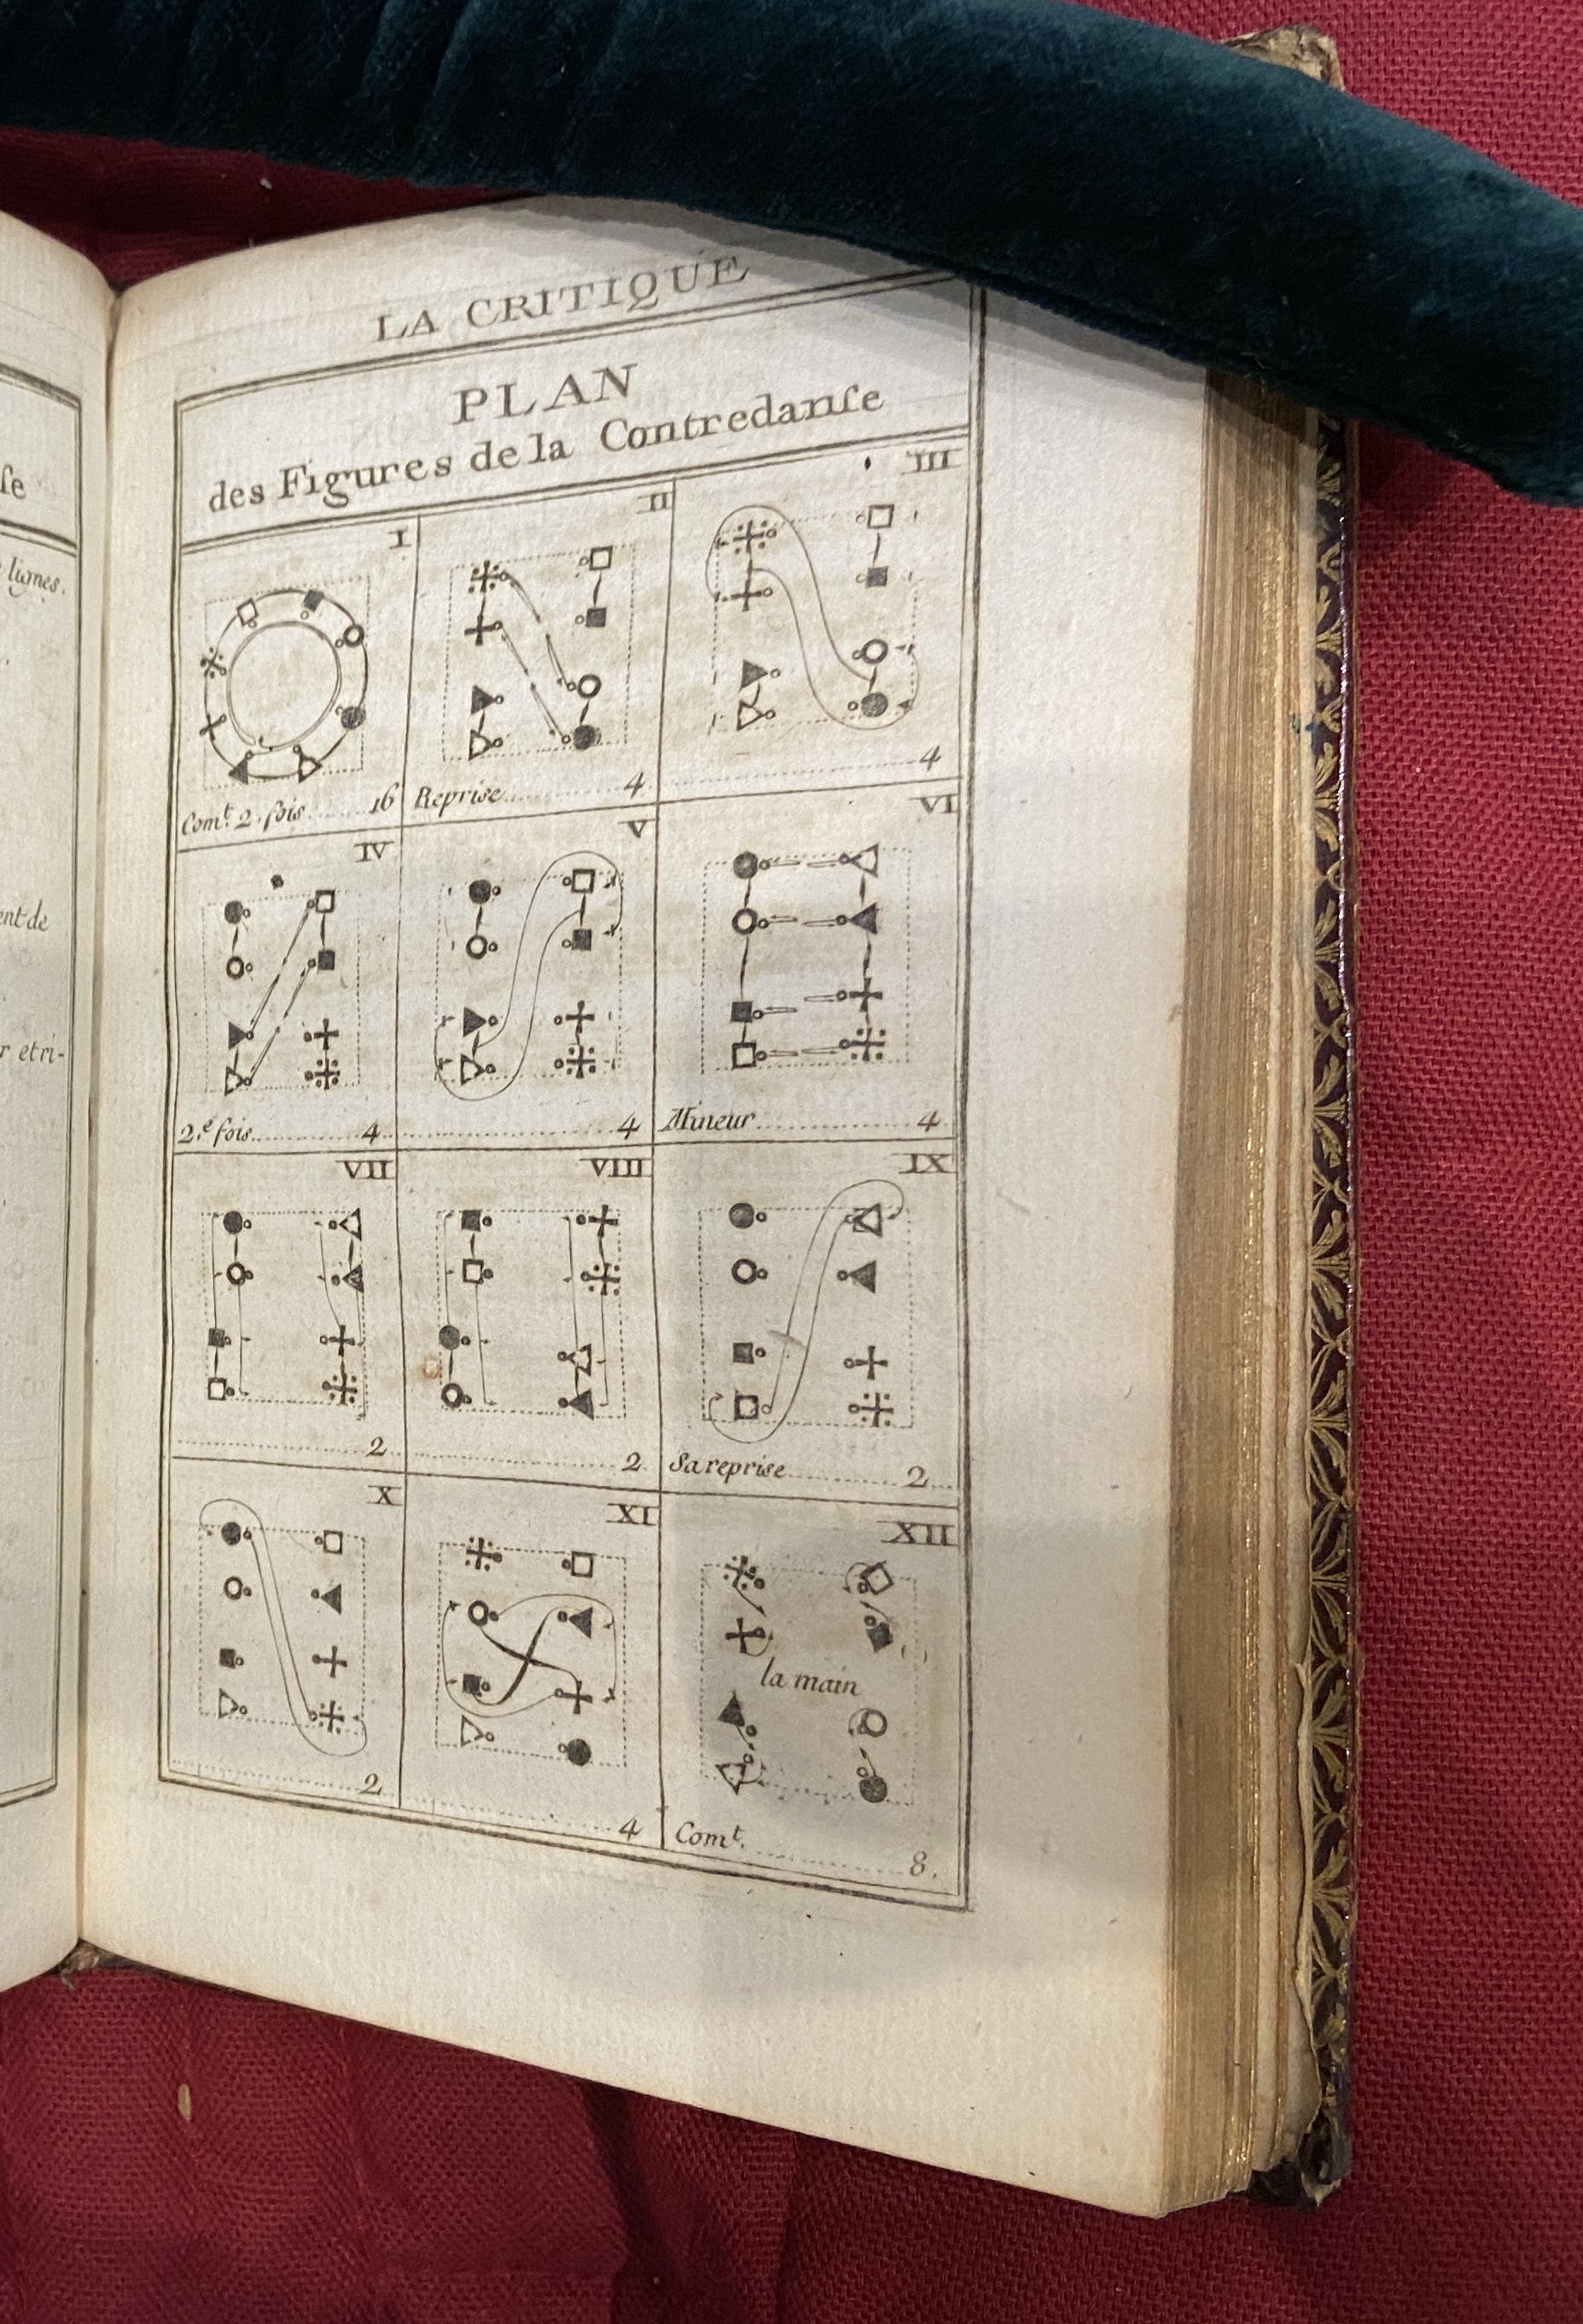 lignes.
LA CRITIQUE
PLAN
des Figures de la Contredanſe
I
II
III
Com.t 2. fois 16
Reprise 4
4
IV
V
VI
2.e fois 4
4
Mineur 4
VII
VIII
IX
2
2
Sa reprise 2
X
XI
XII
la main
2
4
Com.t 8.